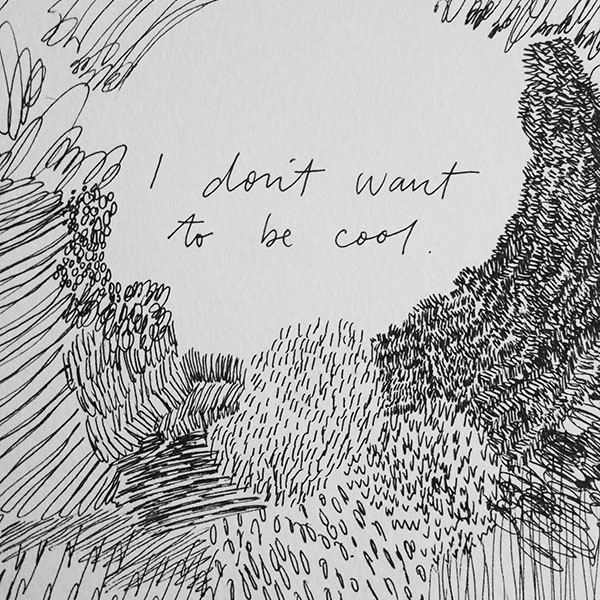 I don't want
to be cool.